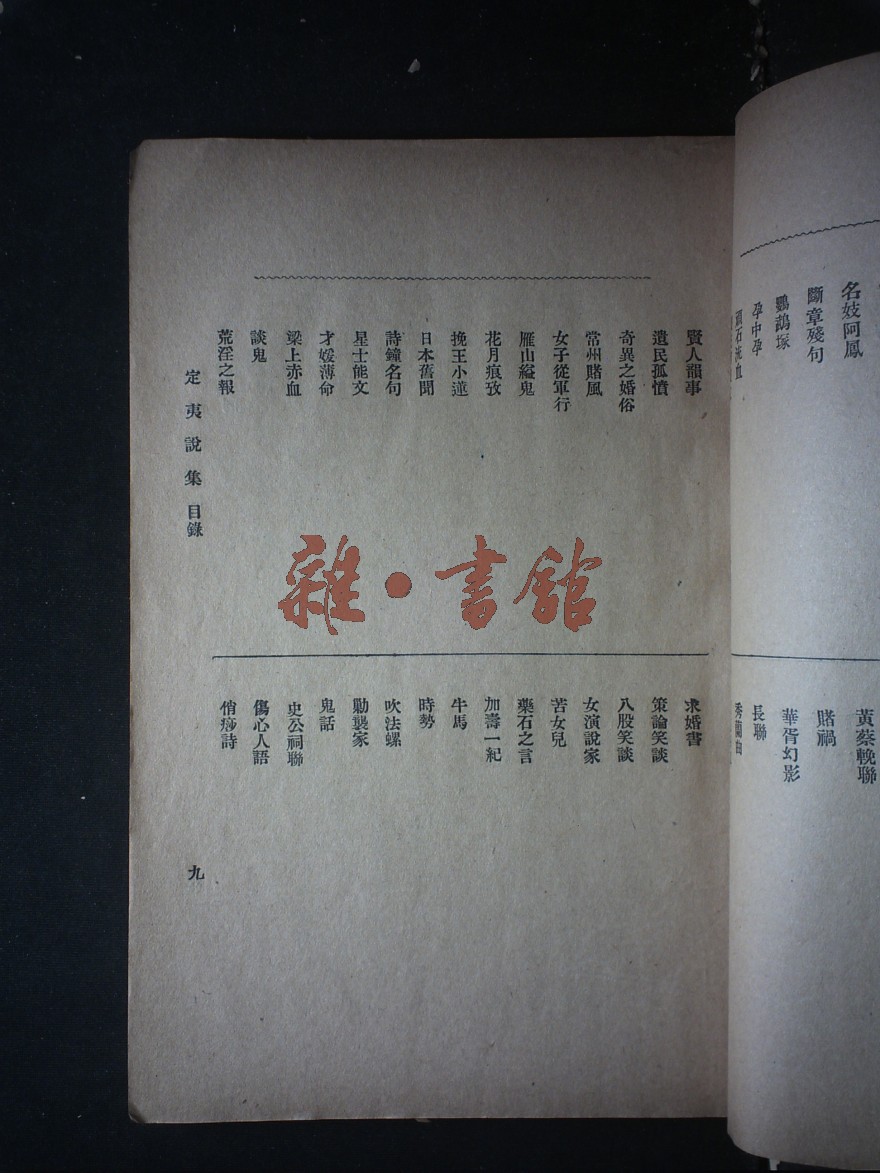 名妓阿鳳
斷章殘句
鸚鵡塚
孕中孕
黃蔡輓聯
賭禍
華胥幻影
長聯
賢人韻事
遺民孤憤
奇異之婚俗
常州賭風
女子從軍行
雁山縊鬼
花月痕攷
挽王小蓮
日本舊聞
詩鐘名句
星士能文
才媛薄命
梁上赤血
談鬼
荒淫之報
求婚書
策論笑談
八股笑談
女演說家
苦女兒
藥石之言
加壽一紀
牛馬
時勢
吹法螺
勦襲家
鬼話
史公祠聯
傷心人語
悄莎詩
定夷說集 目錄
九
雜·書館